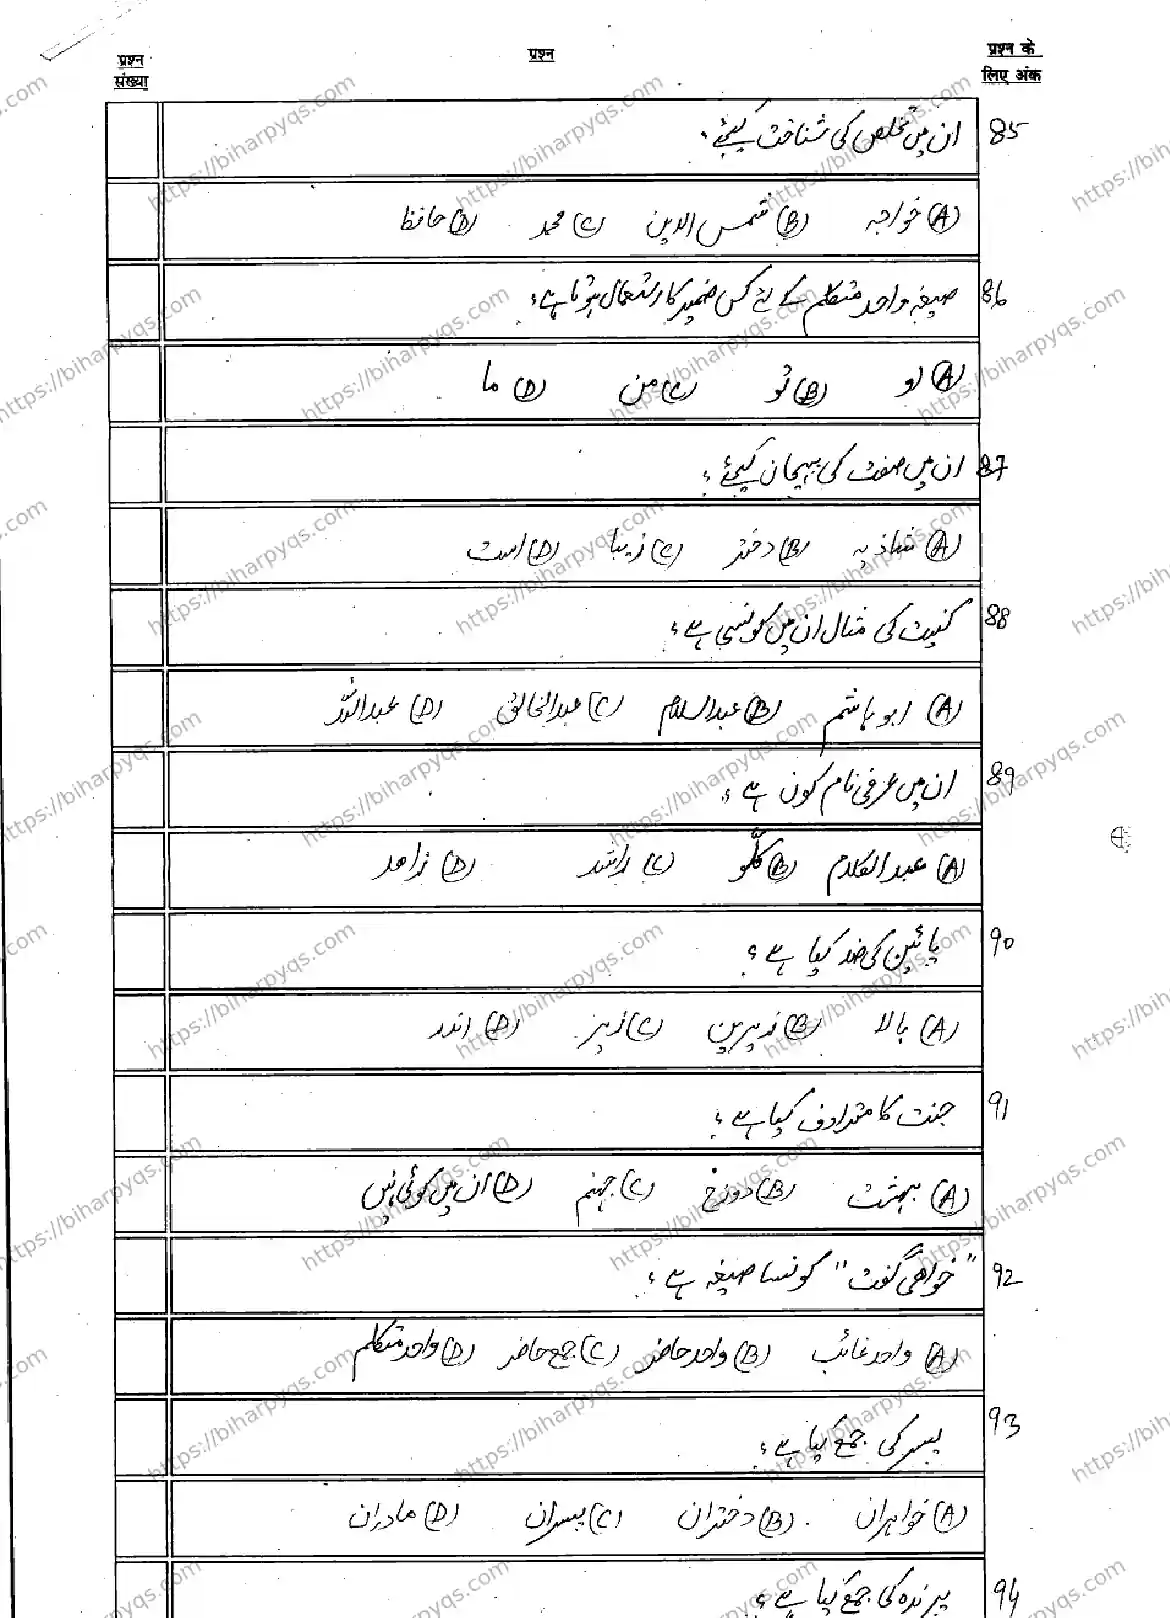 प्रश्न संख्या
प्रश्न
प्रश्न के लिए अंक
85 ان میں تخلص کی شناخت کیجئے؟
(A) خواجہ (B) شمس الدین (C) محمد (D) حافظ
86 صیغہ واحد متکلم کے لئے کس ضمیر کا استعمال ہوتا ہے؟
(A) او (B) تو (C) من (D) ما
87 ان میں صفت کی پہچان کیجئے؟
(A) شاذیہ (B) دختر (C) زیبا (D) است
88 کنیت کی مثال ان میں کونسی ہے؟
(A) ابو ہاشم (B) عبدالسلام (C) عبدالخالق (D) عبداللہ
89 ان میں عرفی نام کون ہے؟
(A) عبدالکلام (B) کلّو (C) راشد (D) زاهد
90 پائین کی ضد کیا ہے؟
(A) بالا (B) زیرین (C) زیر (D) اندر
91 جنت کا مترادف کیا ہے؟
(A) بہشت (B) دوزخ (C) جہنم (D) ان میں کوئی نہیں
92 "خواهی گفت" کونسا صیغہ ہے؟
(A) واحد غائب (B) واحد حاضر (C) جمع حاضر (D) واحد متکلم
93 پسر کی جمع کیا ہے؟
(A) خواہران (B) دختران (C) پسران (D) مادران
94 پرندہ کی جمع کیا ہے؟
https://biharpyqs.com